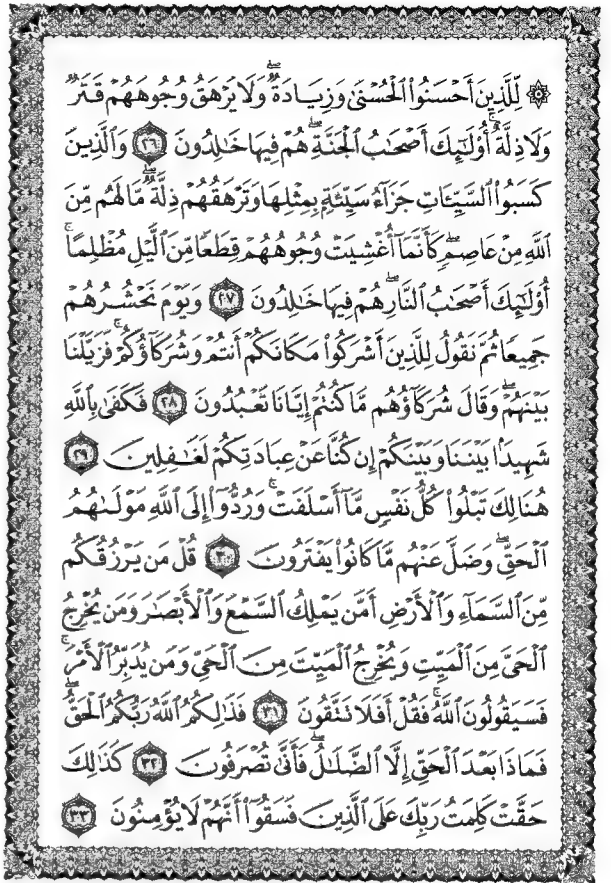 ۞ لِّلَّذِينَ أَحۡسَنُواْ ٱلۡحُسۡنَىٰ وَزِيَادَةٞۖ وَلَا يَرۡهَقُ وُجُوهَهُمۡ قَتَرٞ
وَلَا ذِلَّةٌۚ أُوْلَٰٓئِكَ أَصۡحَٰبُ ٱلۡجَنَّةِۖ هُمۡ فِيهَا خَٰلِدُونَ ٢٦ وَٱلَّذِينَ
كَسَبُواْ ٱلسَّيِّـَٔاتِ جَزَآءُ سَيِّئَةِۭ بِمِثۡلِهَا وَتَرۡهَقُهُمۡ ذِلَّةٞۖ مَّا لَهُم مِّنَ
ٱللَّهِ مِنۡ عَاصِمٖۖ كَأَنَّمَآ أُغۡشِيَتۡ وُجُوهُهُمۡ قِطَعٗا مِّنَ ٱلَّيۡلِ مُظۡلِمًاۚ
أُوْلَٰٓئِكَ أَصۡحَٰبُ ٱلنَّارِۖ هُمۡ فِيهَا خَٰلِدُونَ ٢٧ وَيَوۡمَ نَحۡشُرُهُمۡ
جَمِيعٗا ثُمَّ نَقُولُ لِلَّذِينَ أَشۡرَكُواْ مَكَانَكُمۡ أَنتُمۡ وَشُرَكَآؤُكُمۡۚ فَزَيَّلۡنَا
بَيۡنَهُمۡۖ وَقَالَ شُرَكَآؤُهُم مَّا كُنتُمۡ إِيَّانَا تَعۡبُدُونَ ٢٨ فَكَفَىٰ بِٱللَّهِ
شَهِيدَۢا بَيۡنَنَا وَبَيۡنَكُمۡ إِن كُنَّا عَنۡ عِبَادَتِكُمۡ لَغَٰفِلِينَ ٢٩
هُنَالِكَ تَبۡلُواْ كُلُّ نَفۡسٖ مَّآ أَسۡلَفَتۡۚ وَرُدُّوٓاْ إِلَى ٱللَّهِ مَوۡلَىٰهُمُ
ٱلۡحَقِّۖ وَضَلَّ عَنۡهُم مَّا كَانُواْ يَفۡتَرُونَ ٣٠ قُلۡ مَن يَرۡزُقُكُم
مِّنَ ٱلسَّمَآءِ وَٱلۡأَرۡضِ أَمَّن يَمۡلِكُ ٱلسَّمۡعَ وَٱلۡأَبۡصَٰرَ وَمَن يُخۡرِجُ
ٱلۡحَيَّ مِنَ ٱلۡمَيِّتِ وَيُخۡرِجُ ٱلۡمَيِّتَ مِنَ ٱلۡحَيِّ وَمَن يُدَبِّرُ ٱلۡأَمۡرَۚ
فَسَيَقُولُونَ ٱللَّهُۚ فَقُلۡ أَفَلَا تَتَّقُونَ ٣١ فَذَٰلِكُمُ ٱللَّهُ رَبُّكُمُ ٱلۡحَقُّۖ
فَمَاذَا بَعۡدَ ٱلۡحَقِّ إِلَّا ٱلضَّلَٰلُۖ فَأَنَّىٰ تُصۡرَفُونَ ٣٢ كَذَٰلِكَ
حَقَّتۡ كَلِمَتُ رَبِّكَ عَلَى ٱلَّذِينَ فَسَقُوٓاْ أَنَّهُمۡ لَا يُؤۡمِنُونَ ٣٣